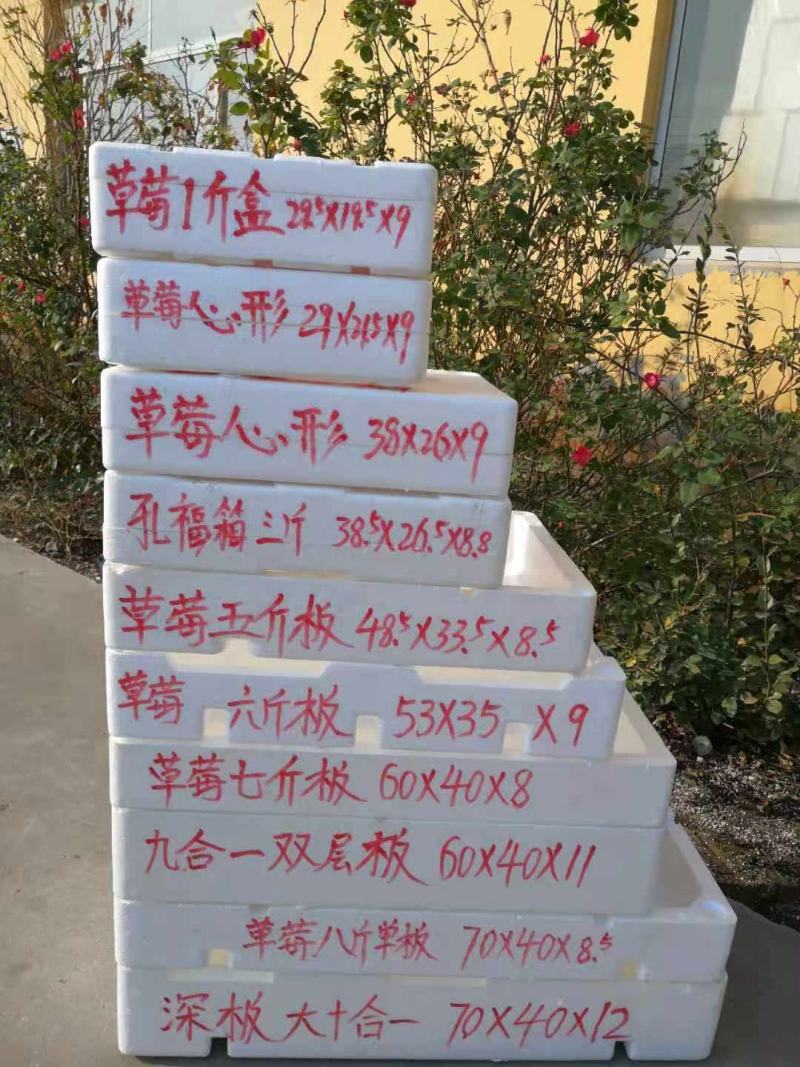 草莓1斤盒 29.5X19.5X9
草莓心形 29X21.5X9
草莓心形 38X26X9
孔福箱三斤 38.5X26.5X8.8
草莓五斤板 48.5X33.5X8.5
草莓 六斤板 53X35 X9
草莓七斤板 60X40X8
九合一双层板 60X40X11
草莓八斤单板 70X40X8.5
深板大十合一 70X40X12